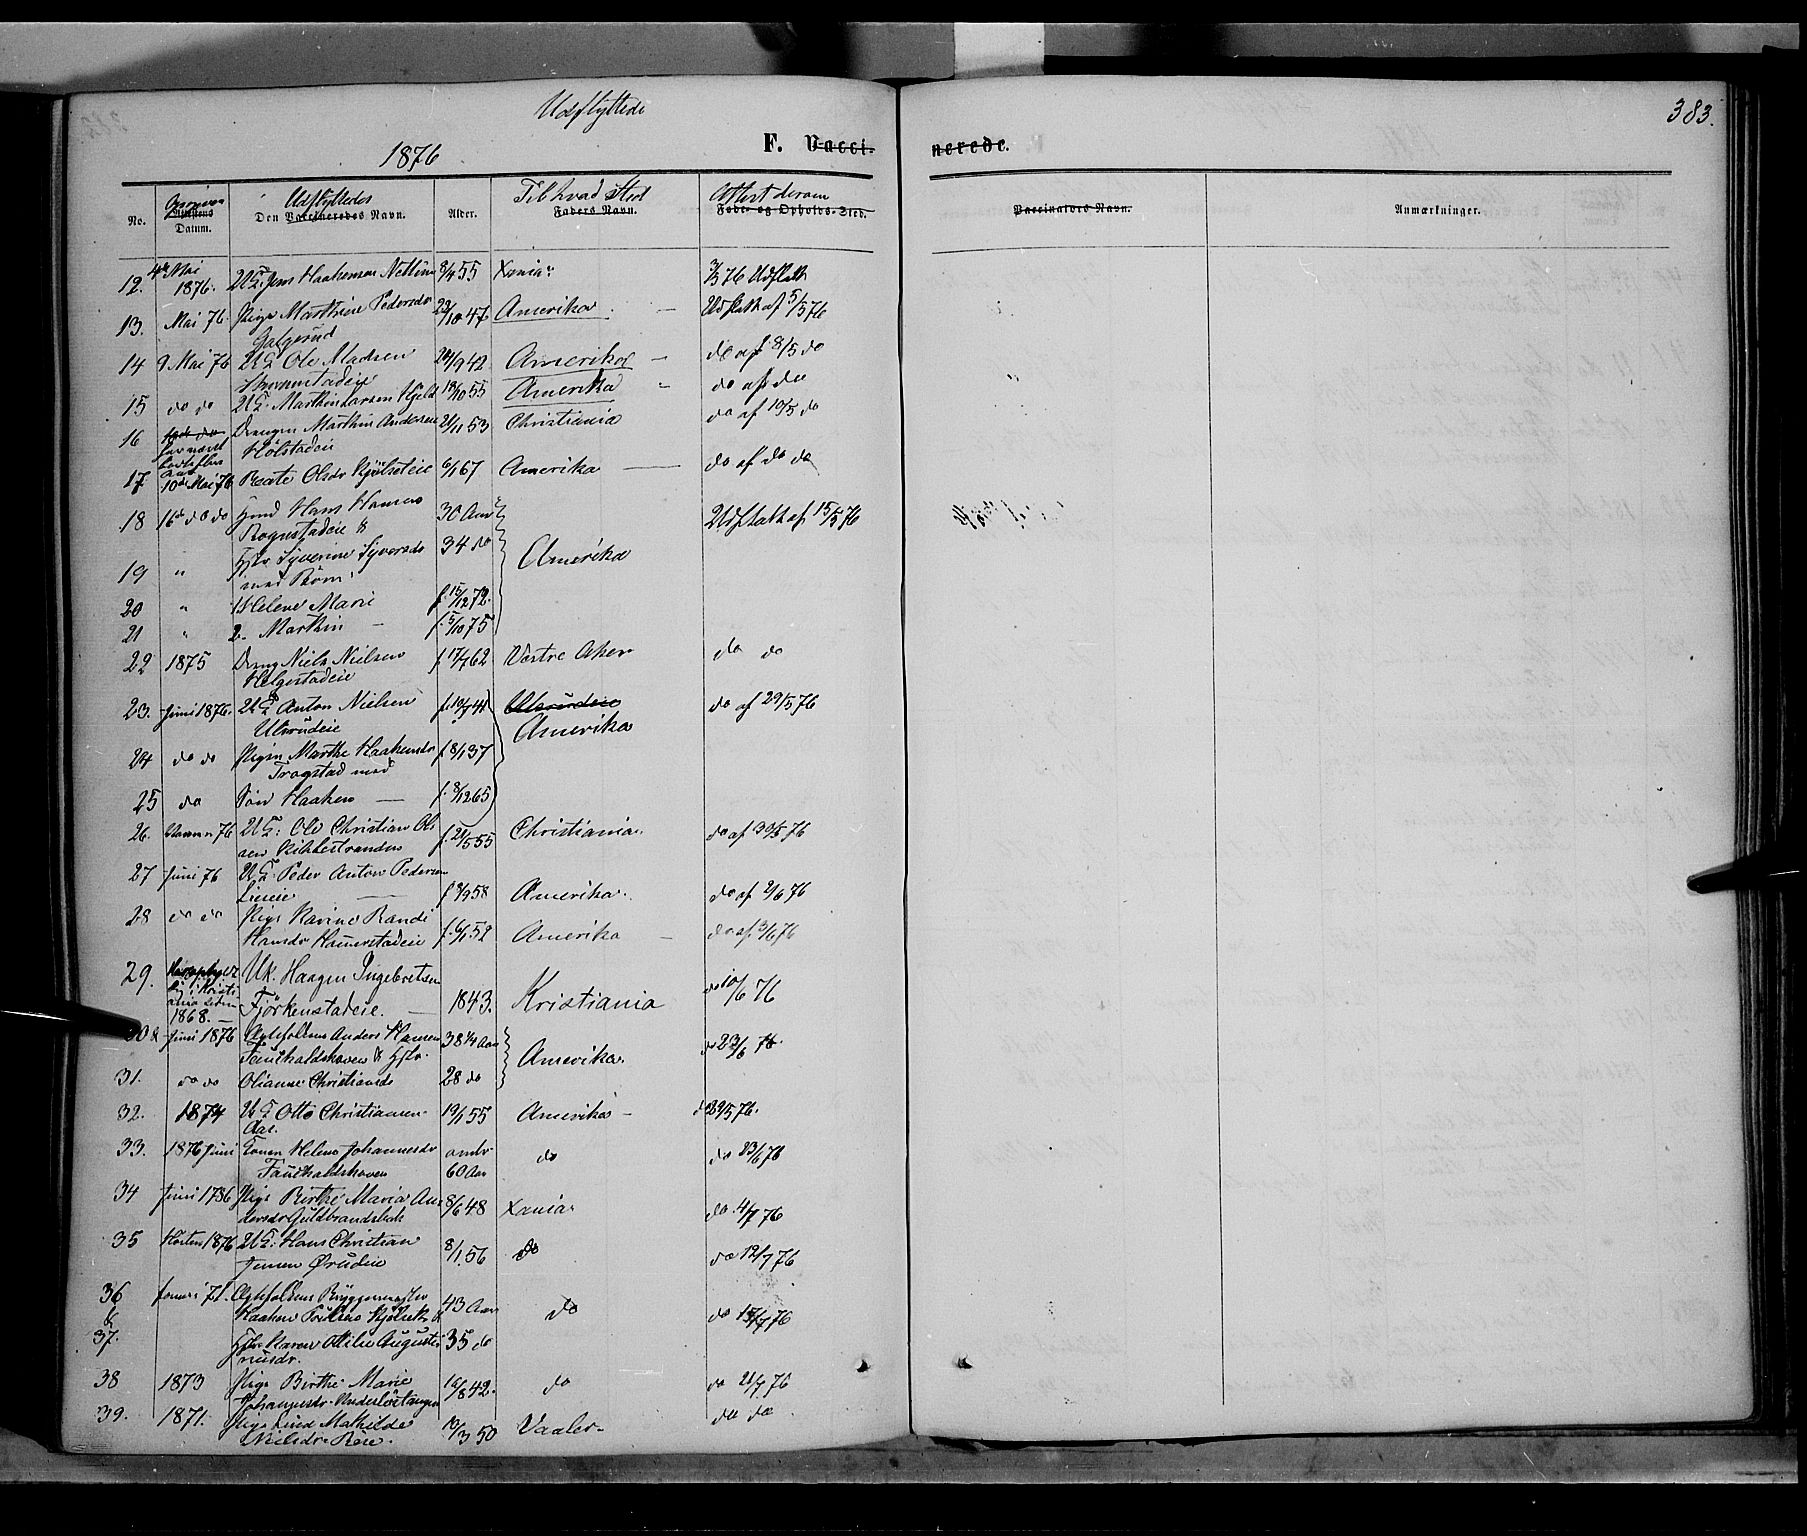 Udflyttede
383.
1876
F. Vacci-
nerede.
Udflyttedes
Til hvad Sted
Attest derom
No.
Datum.
Den Vaccineredes Navn.
Alder.
Faders Navn.
Fade- og Opholds-Sted.
Vaccinators Navn.
Anmærkninger.
12. 4de Mai 1876. UK. Jens Haakensen 8/4 55 Xania 3/5 76 Udflatt
13. Mai 76. Pige Marthine Pedersdr 22/10 47 Amerika Udflatt af 5/5 76
Galgerud
14 9 Mai 76 UK Ole Madsen 9 42 Amerika do af 8/5 do
15 do do UK. Marthin Larsen 18/10 55 Amerika do af do
16 Drengen Marthin Andersen 21/11 53 Christiania do af 10/5 do
Holstadeie
17 10de Mai 76 Beate Olsdr Kjölseteie 6/1 67 Amerika do af do do
18 16de do do Hans Hansen 30 Aar Udflatt af 15/5 76
Rognstadeie &
19 " Syverine Syversdr 34 do Amerika
med Børn:
20 " 1 Helene Marie f. 15/12 72.
21 " 2. Marthin f. 5/10 75
22 1875 Dreng Niels Nielsen f 17/1 62 Vestre Aker do do
Helgestadeie
23. Juni 1876. UK Anton Nielsen f. 10/7 41 Ulsrudeie do af 29/5 76
Ulsrudeie Amerika
24 do do Pigen Marthe Haakensdr f. 8/1 37
Trogstad med
25 do Søn Haaken f. 8/12 65
26. 76 UK: Ole Christian Ol- f. 21/5 55 Christiania. do af 30/5 76
sen
27 Juni 76 UK. Peder Anton Pedersen
Lieeie f 9 58 Amerika. do af 2/6 76
28 do do Pige Karine Randi
Hansdr f. 6/1 52 Amerika do af 3/6 76
29. Uk. Haagen Ingebretsen do 10/6 76
1868. Fjörkenstadeie. 1843. Kristiania
30 & Juni 1876 Anders Hansen 38 1/4 Aar Amerika. do 23/6 76.
Fauchaldshaven &
31. do do Oliane Christiansdr 28 do
32. 1874 UK Otto Christiansen 19/1 55 Amerika do 29/5 76.
Aas.
33. 1876 Juni Helene Johannesdr omtr do do 23/6 76
Fauchaldshaven 60 Aar
34 Juni 1786 Pige Birthe Maria An- 8/6 48 Xania do 4/7 76
dersdr Guldbrandsbak
35 Høsten 1876 UK: Hans Christian 8/1 56 do do 12/7 76
Jensen Ørudeie
36 Januar 71. Bryggermester 43 Aar do do 15/7 76
& Haaken &
37. Karen Otilie Augusti- 35 do
nusdr.
38 1873 Pige Birthe Marie 16/8 42. do do 21/7 76
Johannesdr
39. 1871. Pige Mathilde 10/3 50 Vaaler do do
Nielsdr.